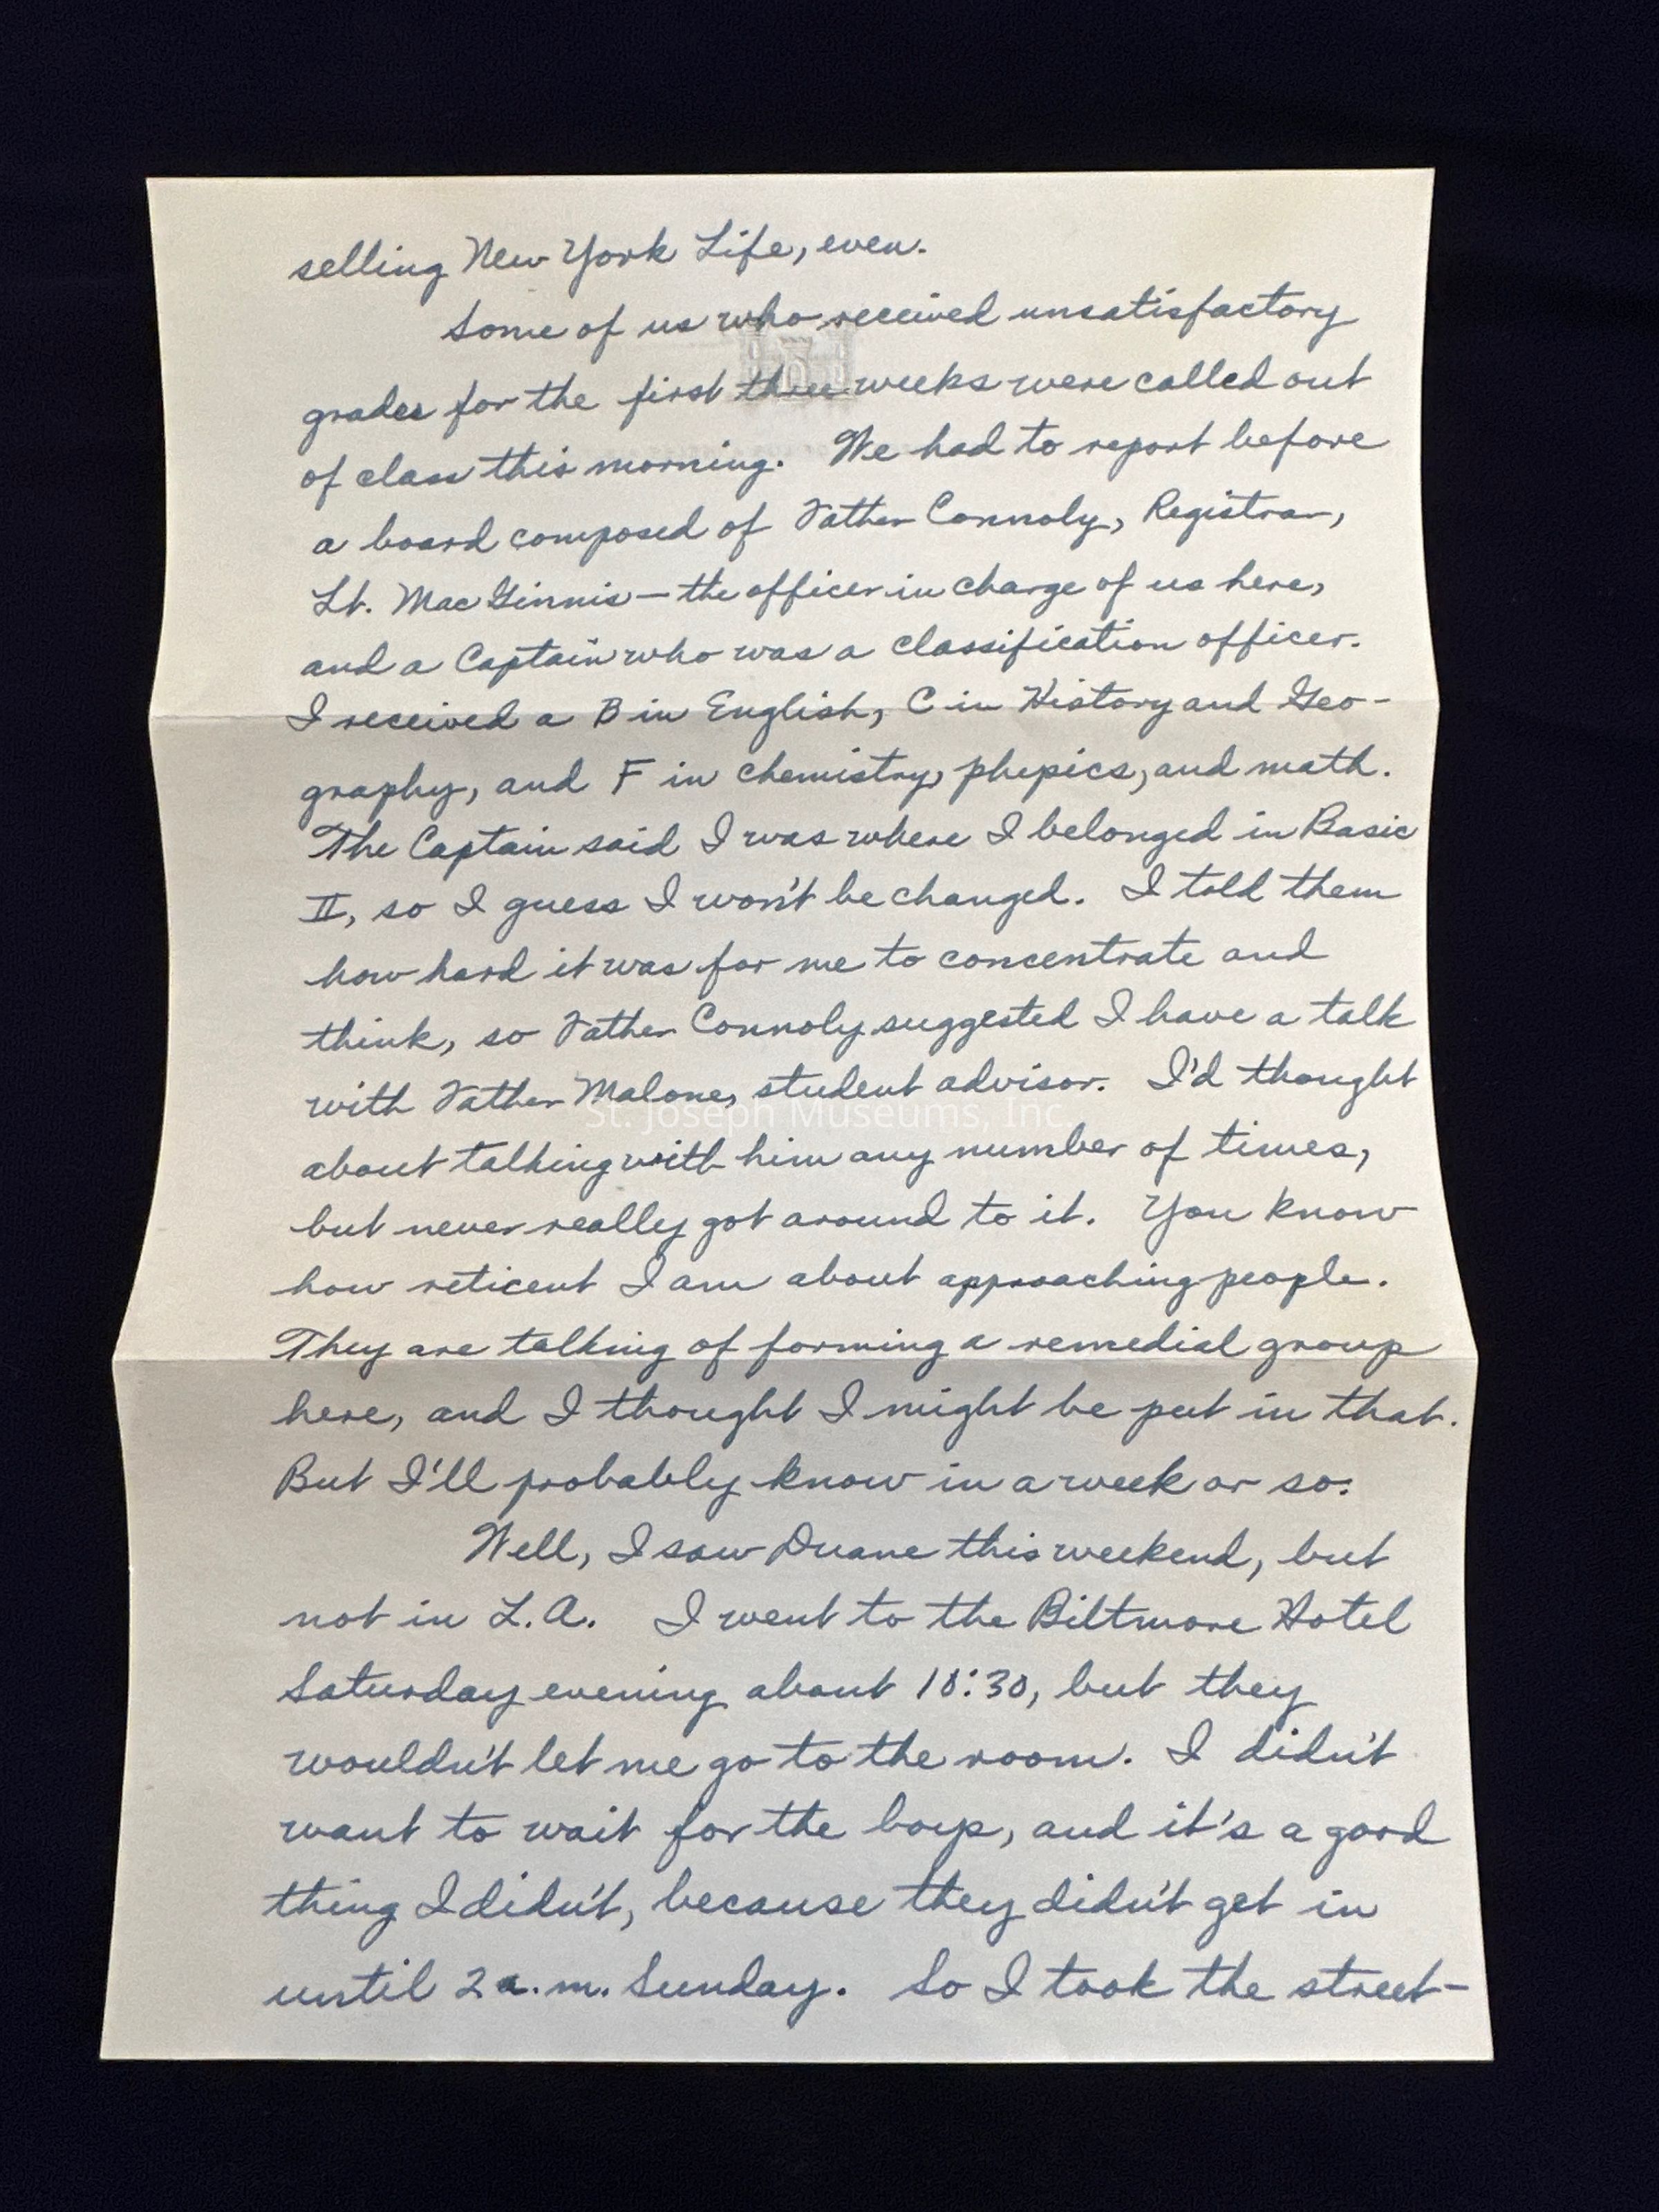 selling New York Life, even.
Some of us who received unsatisfactory
grades for the first three weeks were called out
of class this morning. We had to report before
a board composed of Father Connoly, Registrar,
Lt. MacGinnis — the officer in charge of us here,
and a Captain who was a classification officer.
I received a B in English, C in History and Geo-
graphy, and F in chemistry, phepics, and math.
The Captain said I was where I belonged in Basic
II, so I guess I won't be changed. I told them
how hard it was for me to concentrate and
think, so Father Connoly suggested I have a talk
with Father Malone, student advisor. I'd thought
St. Joseph Museums, Inc.
about talking with him any number of times,
but never really got around to it. You know
how reticent I am about approaching people.
They are talking of forming a remedial group
here, and I thought I might be put in that.
But I'll probably know in a week or so.
Well, I saw Duane this weekend, but
not in L.A. I went to the Biltmore Hotel
Saturday evening about 10:30, but they
wouldn't let me go to the room. I didn't
want to wait for the boys, and it's a good
thing I didn't, because they didn't get in
until 2 a.m. Sunday. So I took the street-